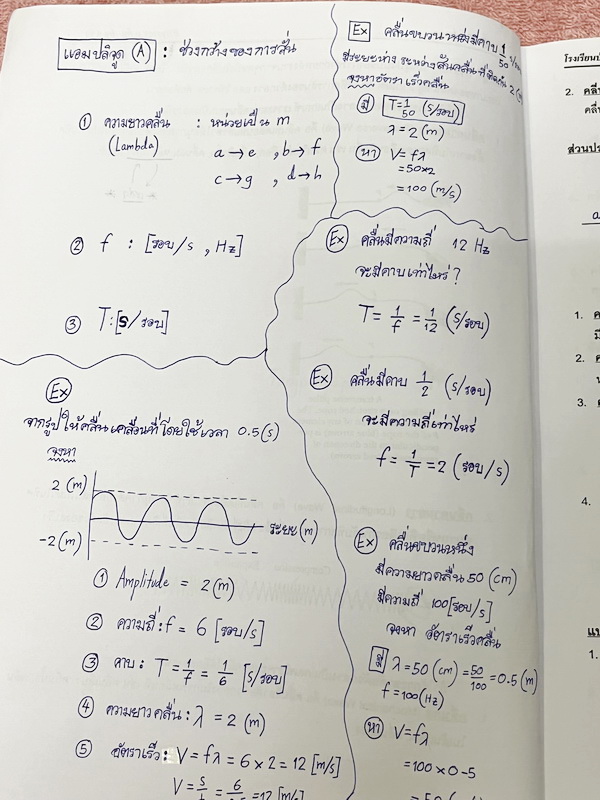 แอมปลิจูด (A) : ช่วงกว้างของการสั่น
① ความยาวคลื่น : หน่วยเป็น m
(Lambda) a → e , b → f
c → g , d → h
② f : [รอบ/s , Hz]
③ T : [s/รอบ]
Ex
จากรูปให้คลื่นเคลื่อนที่โดยใช้เวลา 0.5 (s)
จงหา
2 (m)
ระยะ (m)
-2 (m)
① Amplitude = 2 (m)
② ความถี่ : f = 6 [รอบ/s]
③ คาบ : T = 1/f = 1/6 [s/รอบ]
④ ความยาวคลื่น : λ = 2 (m)
⑤ อัตราเร็ว : V = fλ = 6 × 2 = 12 [m/s]
Ex คลื่นขบวนหนึ่งมีคาบ 1/50
มีระยะห่าง ระหว่างสันคลื่นที่ติดกัน 2
จงหาอัตราเร็วคลื่น
มี T = 1/50 (s/รอบ)
λ = 2 (m)
หา V = fλ
= 50×2
= 100 (m/s)
Ex คลื่นมีความถี่ 12 Hz
จะมีคาบเท่าไหร่ ?
T = 1/f = 1/12 (s/รอบ)
Ex คลื่นมีคาบ 1/2 (s/รอบ)
จะมีความถี่เท่าไหร่
f = 1/T = 2 (รอบ/s)
Ex คลื่นขบวนหนึ่ง
มีความยาวคลื่น 50 (cm)
มีความถี่ 100 [รอบ/s]
จงหา อัตราเร็วคลื่น
มี λ = 50 (cm) = 50/100 = 0.5 (m)
f = 100 (Hz)
หา V = fλ
= 100 × 0.5
โรงเรียน
2. คลื่
คลื่
ส่วนประ
a
1.
2.
3.
4.
1.